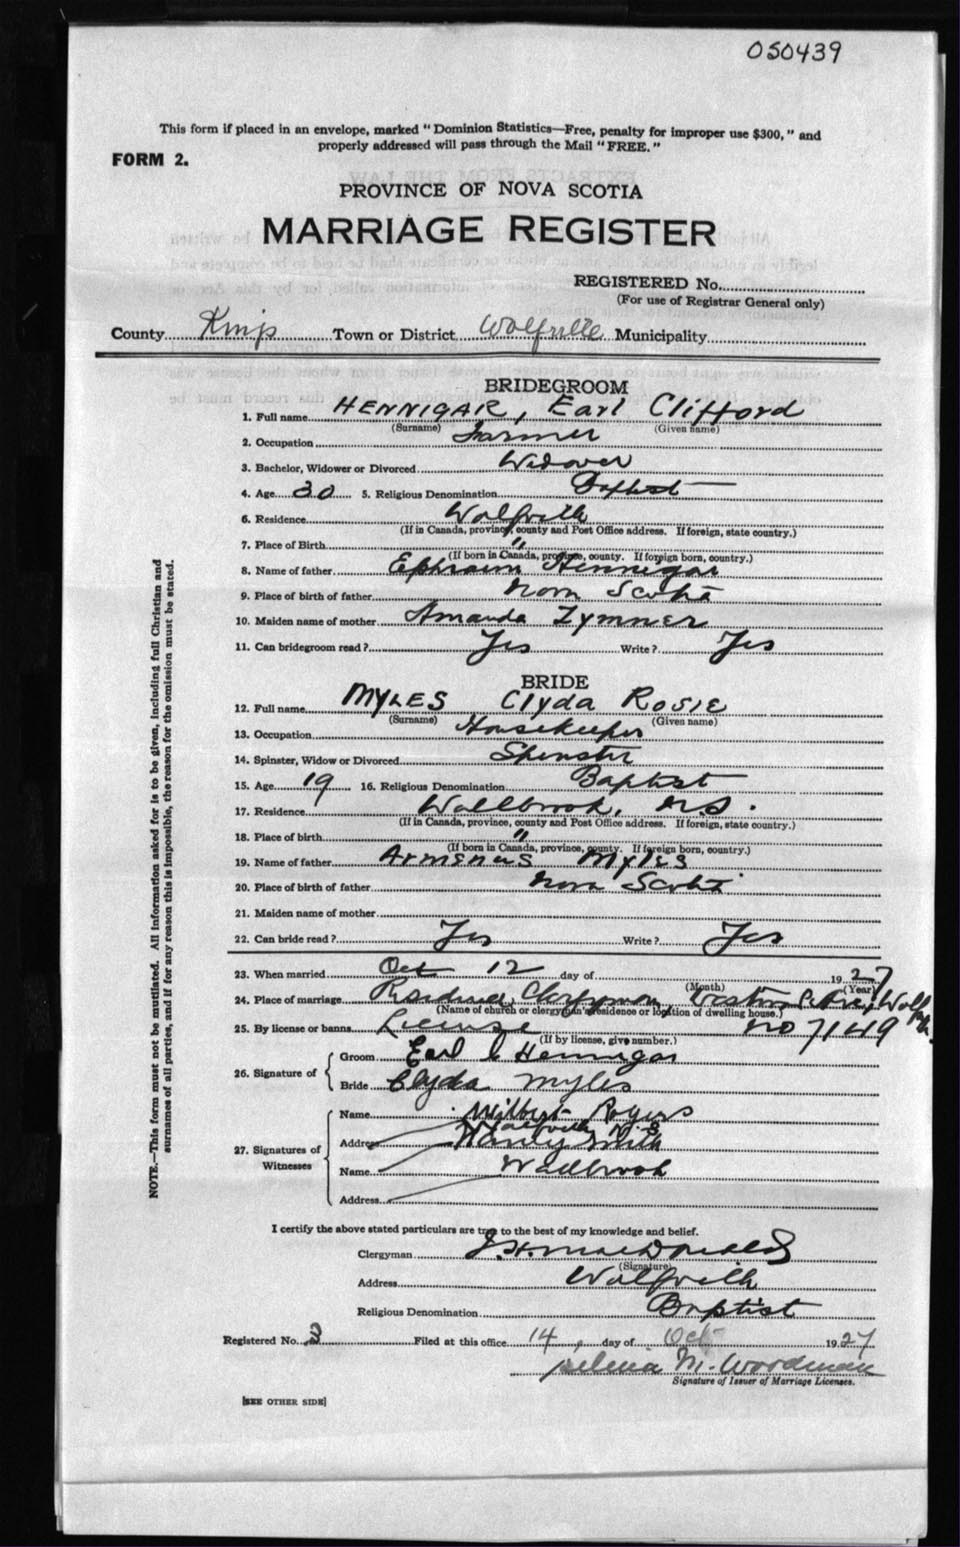 050439
This form if placed in an envelope, marked "Dominion Statistics—Free, penalty for improper use $300," and
properly addressed will pass through the Mail "FREE."
FORM 2.
PROVINCE OF NOVA SCOTIA
MARRIAGE REGISTER
REGISTERED No.
(For use of Registrar General only)
County Kings Town or District Wolfville Municipality
BRIDEGROOM
1. Full name HENNIGAR, Earl Clifford
(Surname) (Given name)
2. Occupation Farmer
3. Bachelor, Widower or Divorced Widower
4. Age 30 5. Religious Denomination Baptist
6. Residence Wolfville
(If in Canada, province, county and Post Office address. If foreign, state country.)
7. Place of Birth "
(If born in Canada, province, county. If foreign born, country.)
8. Name of father Ephraim Hennigar
9. Place of birth of father Nova Scotia
10. Maiden name of mother Amanda
11. Can bridegroom read? Yes Write? Yes
BRIDE
12. Full name MYLES Clyda Rosie
(Surname) (Given name)
13. Occupation Housekeeper
14. Spinster, Widow or Divorced Spinster
15. Age 19 16. Religious Denomination Baptist
17. Residence Wallbrook, N.S.
(If in Canada, province, county and Post Office address. If foreign, state country.)
18. Place of birth "
(If born in Canada, province, county. If foreign born, country.)
19. Name of father Armenus Myles
20. Place of birth of father Nova Scotia
21. Maiden name of mother
22. Can bride read? Yes Write? Yes
23. When married Oct 12 day of 1927
(Month) (Year)
24. Place of marriage Residence, Clergyman,
(Name of church or clergyman's residence or location of dwelling house.)
25. By license or banns License no 7149
(If by license, give number.)
26. Signature of Groom Earl C Hennigar
Bride Clyda Myles
27. Signatures of Witnesses
Name Wilbert Rogers
Address Wolfville N.S
Smith
Name Wallbrook
Address
I certify the above stated particulars are true to the best of my knowledge and belief.
Clergyman MacDonald
(Signature)
Address Wolfville
Religious Denomination Baptist
Registered No. 3 Filed at this office 14 day of Oct 1927
Selena M. Woodman
Signature of Issuer of Marriage Licenses.
[SEE OTHER SIDE]
NOTE.—This form must not be mutilated. All information asked for is to be given, including full Christian and
surnames of all parties, and if for any reason this is impossible, the reason for the omission must be stated.